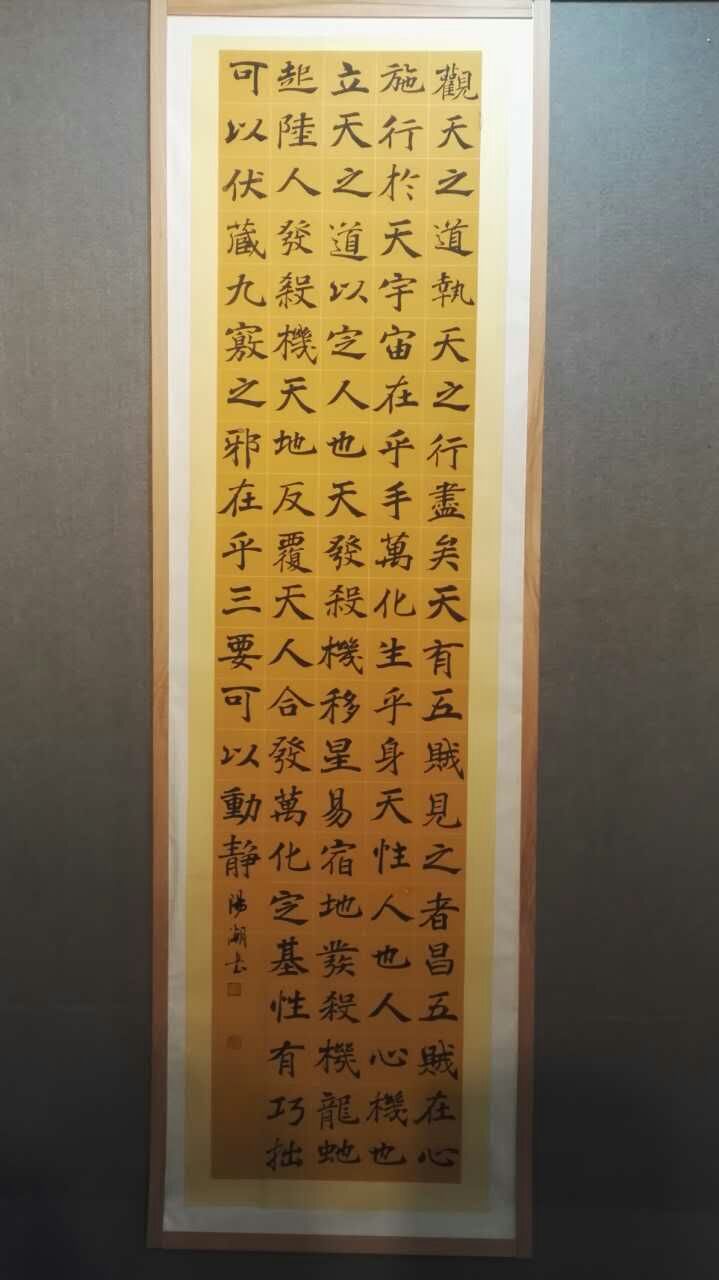 觀天之道執天之行盡矣天有五賊見之者昌五賊在心
施行於天宇宙在乎手萬化生乎身天性人也人心機也
立天之道以定人也天發殺機移星易宿地發殺機龍虵
起陸人發殺機天地反覆天人合發萬化定基性有巧拙
可以伏藏九竅之邪在乎三要可以動静
陽湖書